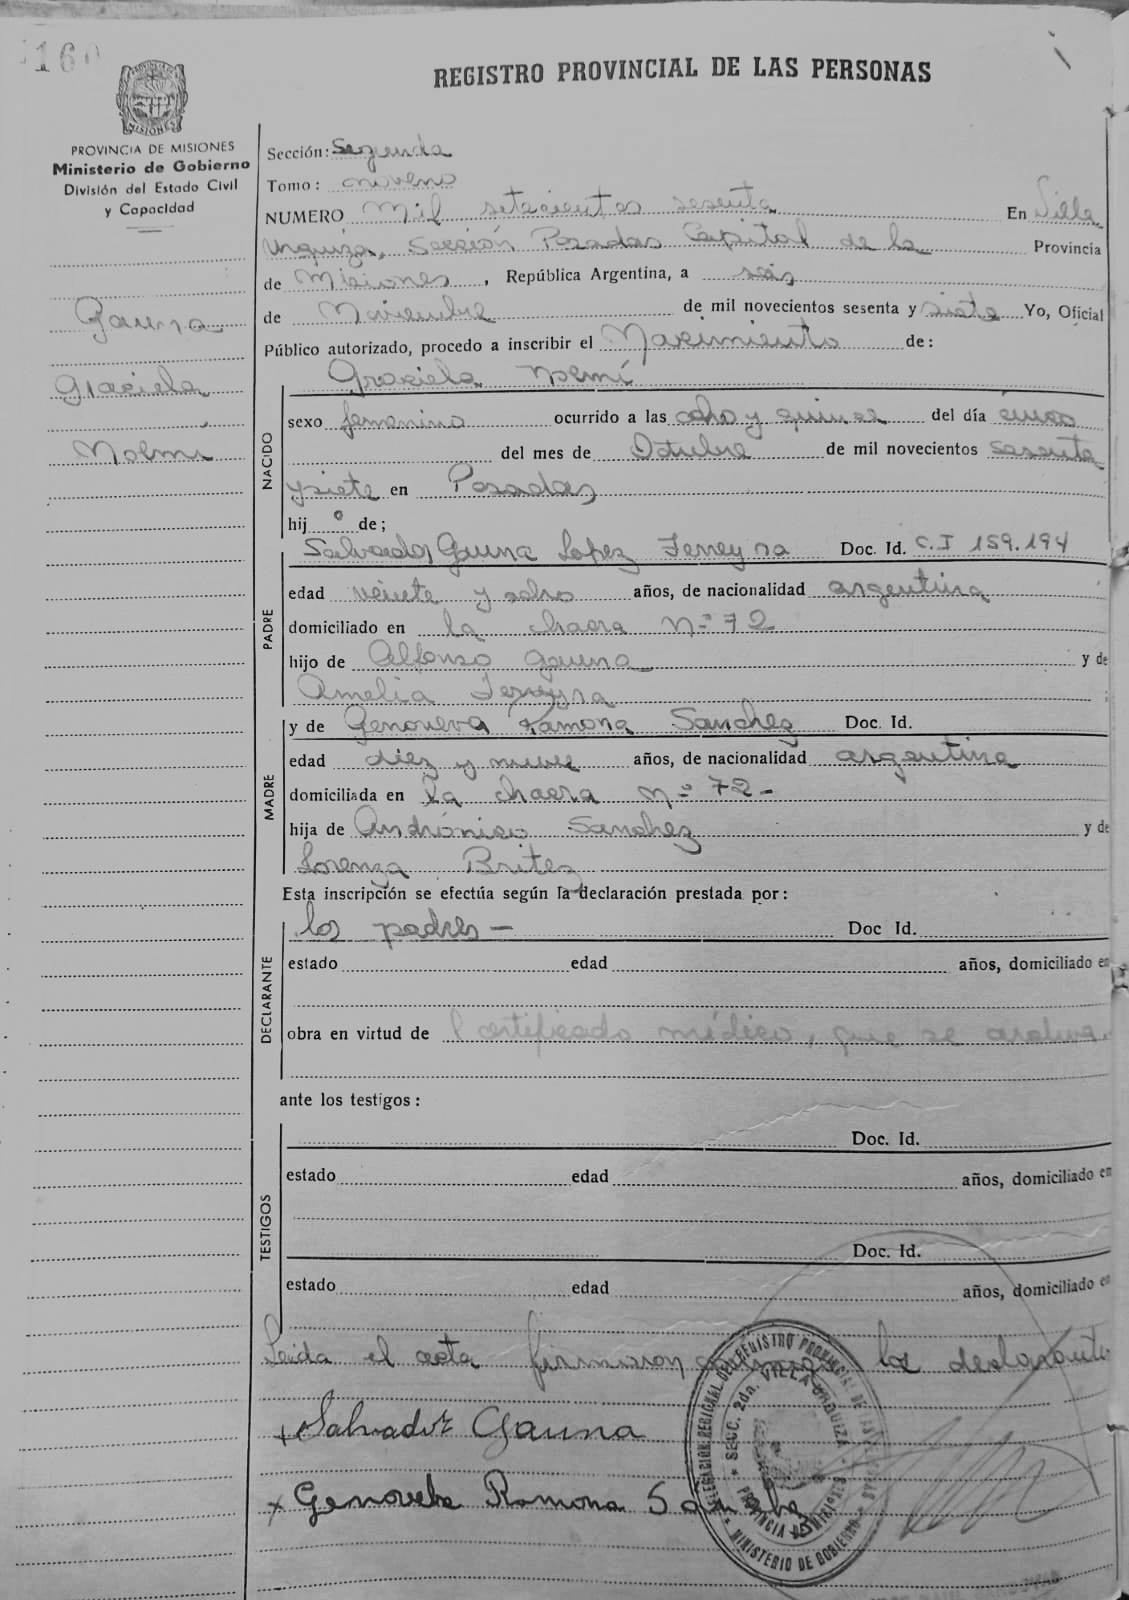 160
REGISTRO PROVINCIAL DE LAS PERSONAS
MISIONES
PROVINCIA DE MISIONES
Ministerio de Gobierno
División del Estado Civil
y Capacidad
Gauna
Graciela
Noemí
Sección: Segunda
Tomo: noveno
NUMERO Mil setecientos sesenta En Villa
Urquiza, Sección Posadas Capital de la Provincia
de Misiones, República Argentina, a seis
de Noviembre de mil novecientos sesenta y siete Yo, Oficial
Público autorizado, procedo a inscribir el Nacimiento de:
Graciela Noemí
NACIDO
sexo femenino ocurrido a las ocho y quince del día cinco
del mes de Octubre de mil novecientos sesenta
y siete en Posadas
hij a de;
Salvador Gauna Lopez Ferreyra Doc. Id. C.I 159.194
PADRE
edad veinte y ocho años, de nacionalidad argentina
domiciliado en la chacra Nº 72
hijo de Alfonso Gauna y de
Amelia Ferreyra
y de Genoveva Ramona Sanchez Doc. Id.
MADRE
edad diez y nueve años, de nacionalidad argentina
domiciliada en la chacra nº 72 -
hija de Andrónico Sanchez y de
Lorenza Britez
Esta inscripción se efectúa según la declaración prestada por:
los padres - Doc Id.
DECLARANTE
estado edad años, domiciliado en
obra en virtud de Certificado médico, que se archiva.
ante los testigos:
Doc. Id.
TESTIGOS
estado edad años, domiciliado en
Doc. Id.
estado edad años, domiciliado en
Leida el acta firmaron conmigo los declarante
+ Salvador Gauna
x Genoveba Ramona Sanchez
DELEGACIÓN REGIONAL DEL REGISTRO PROVINCIAL DE LAS PERSONAS
SECC. 2da. VILLA URQUIZA
PROVINCIA DE MISIONES
MINISTERIO DE GOBIERNO